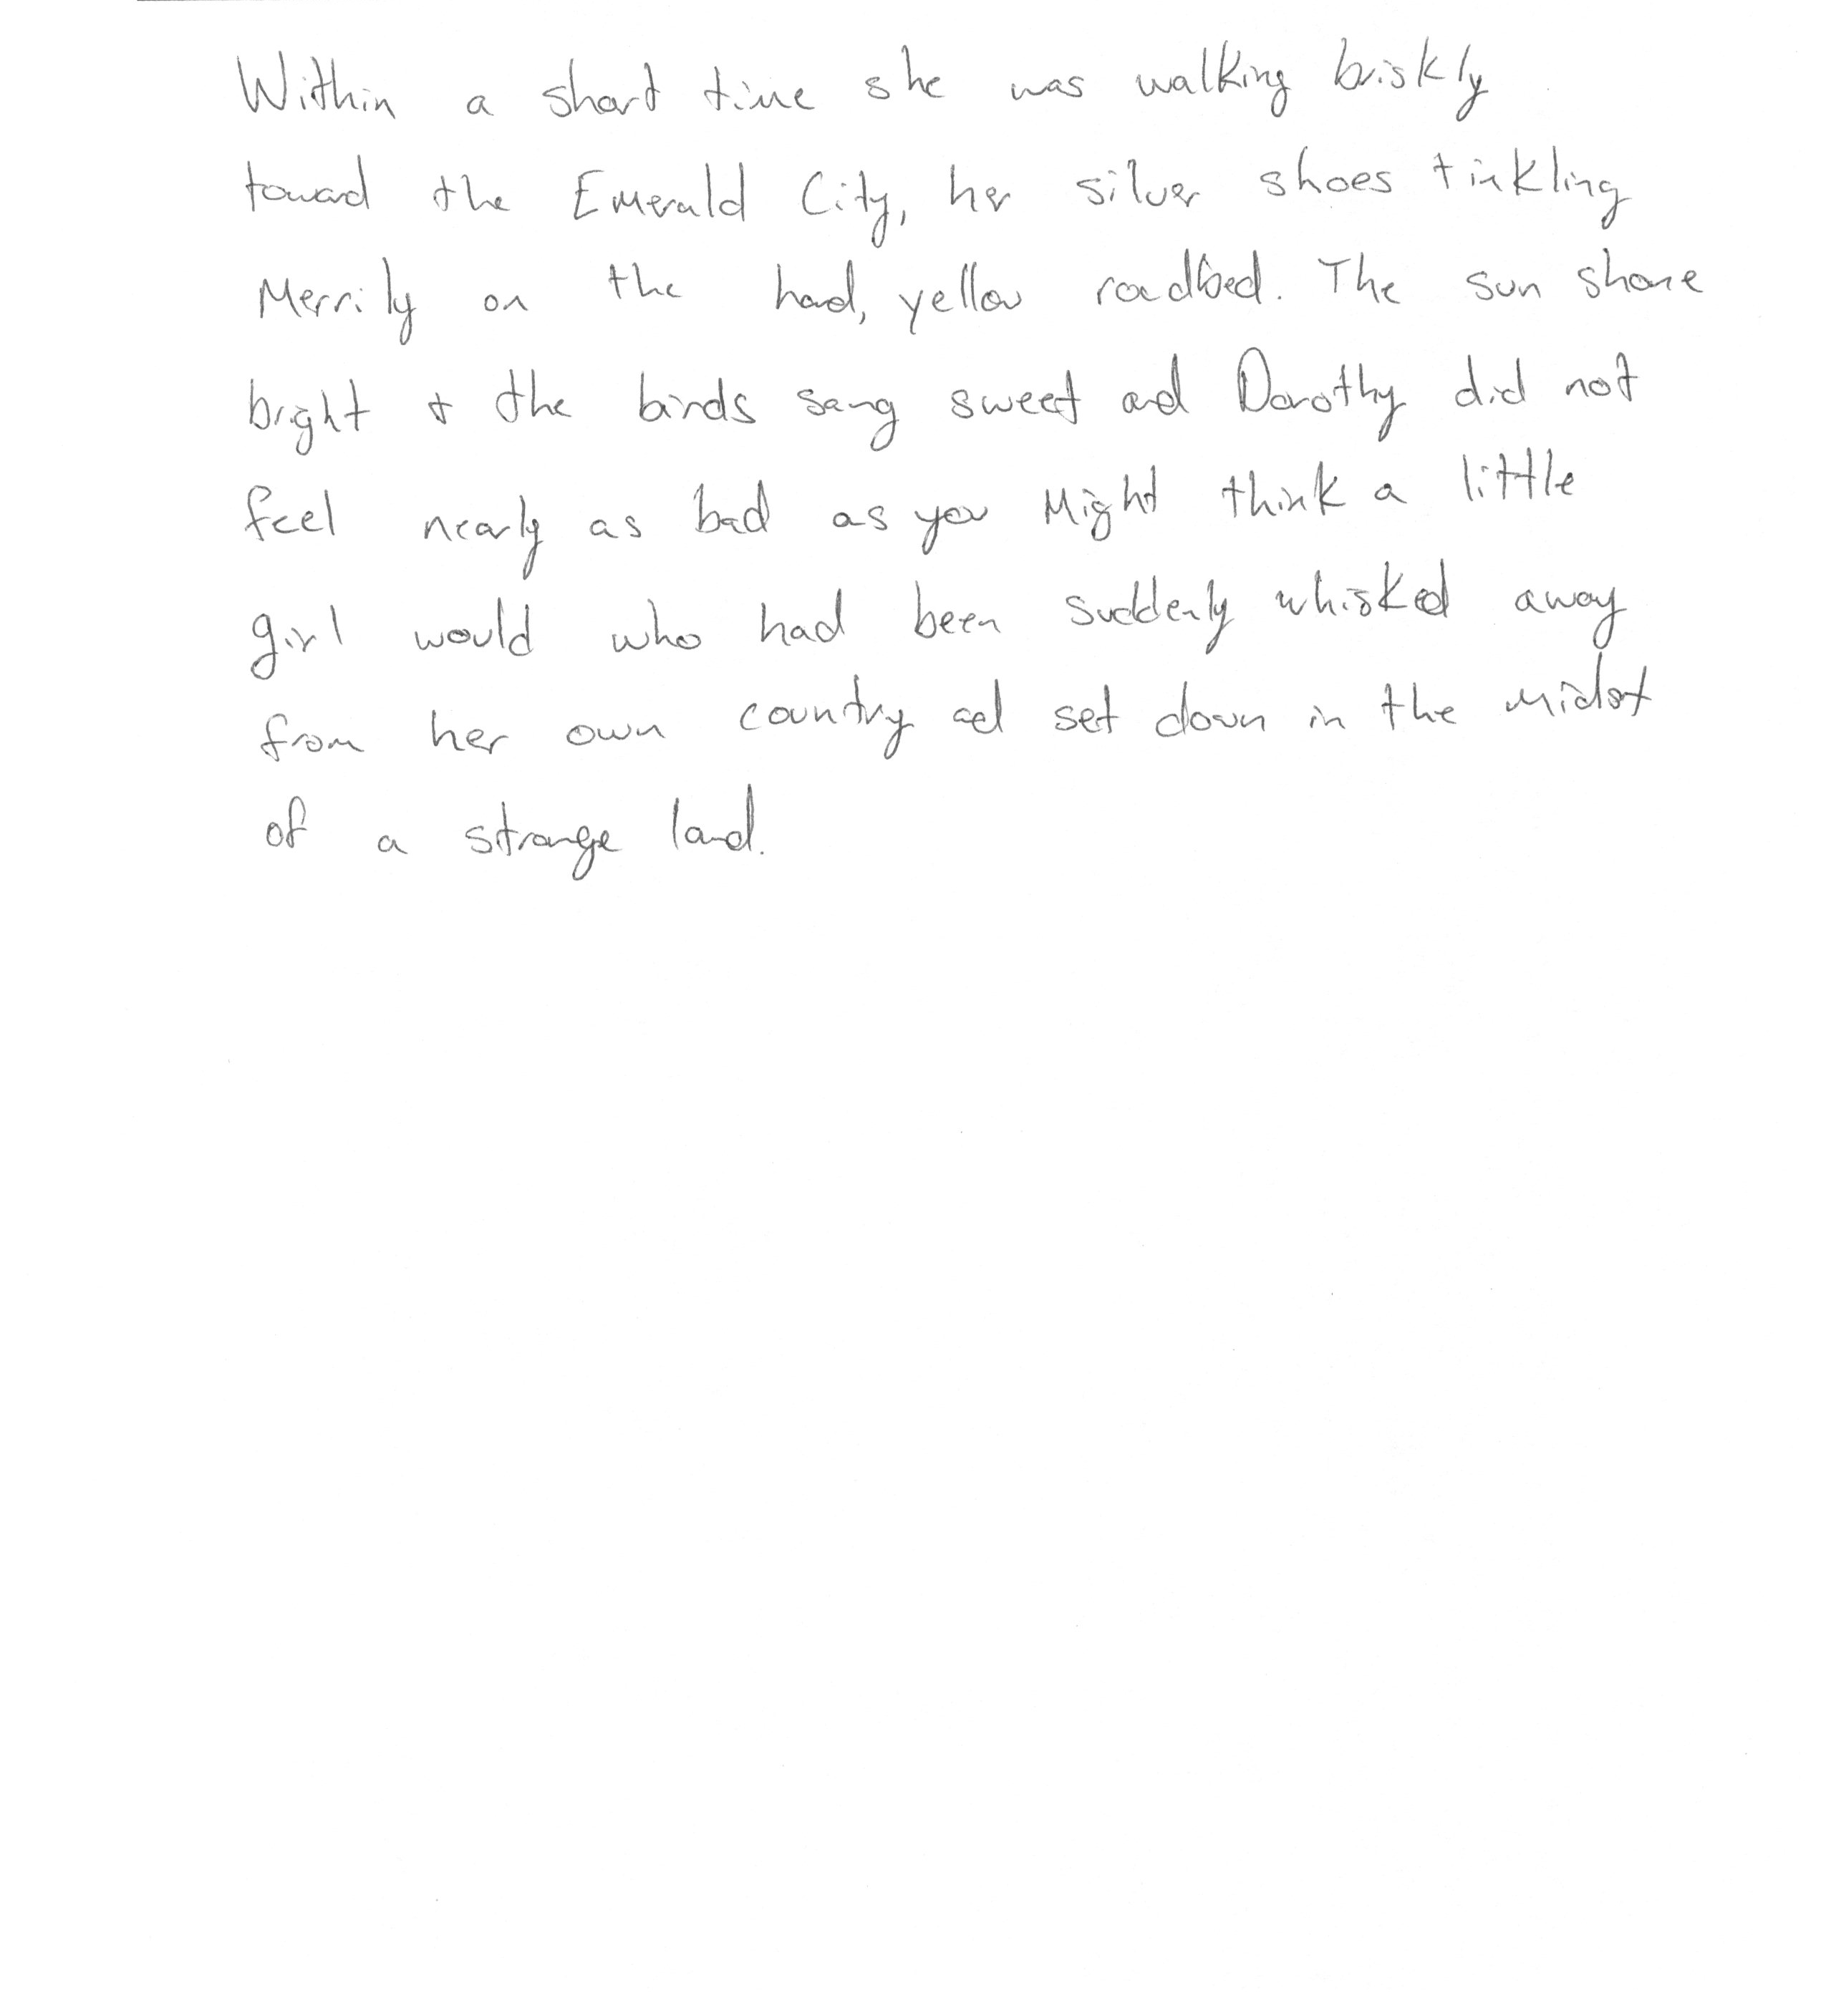 Within a short time she was walking briskly
toward the Emerald City, her silver shoes tinkling
Merrily on the hard, yellow roadbed. The sun shone
bright + the birds sang sweet and Dorothy did not
feel nearly as bad as you Might think a little
girl would who had been suddenly whisked away
from her own country and set down in the midst
of a strange land.